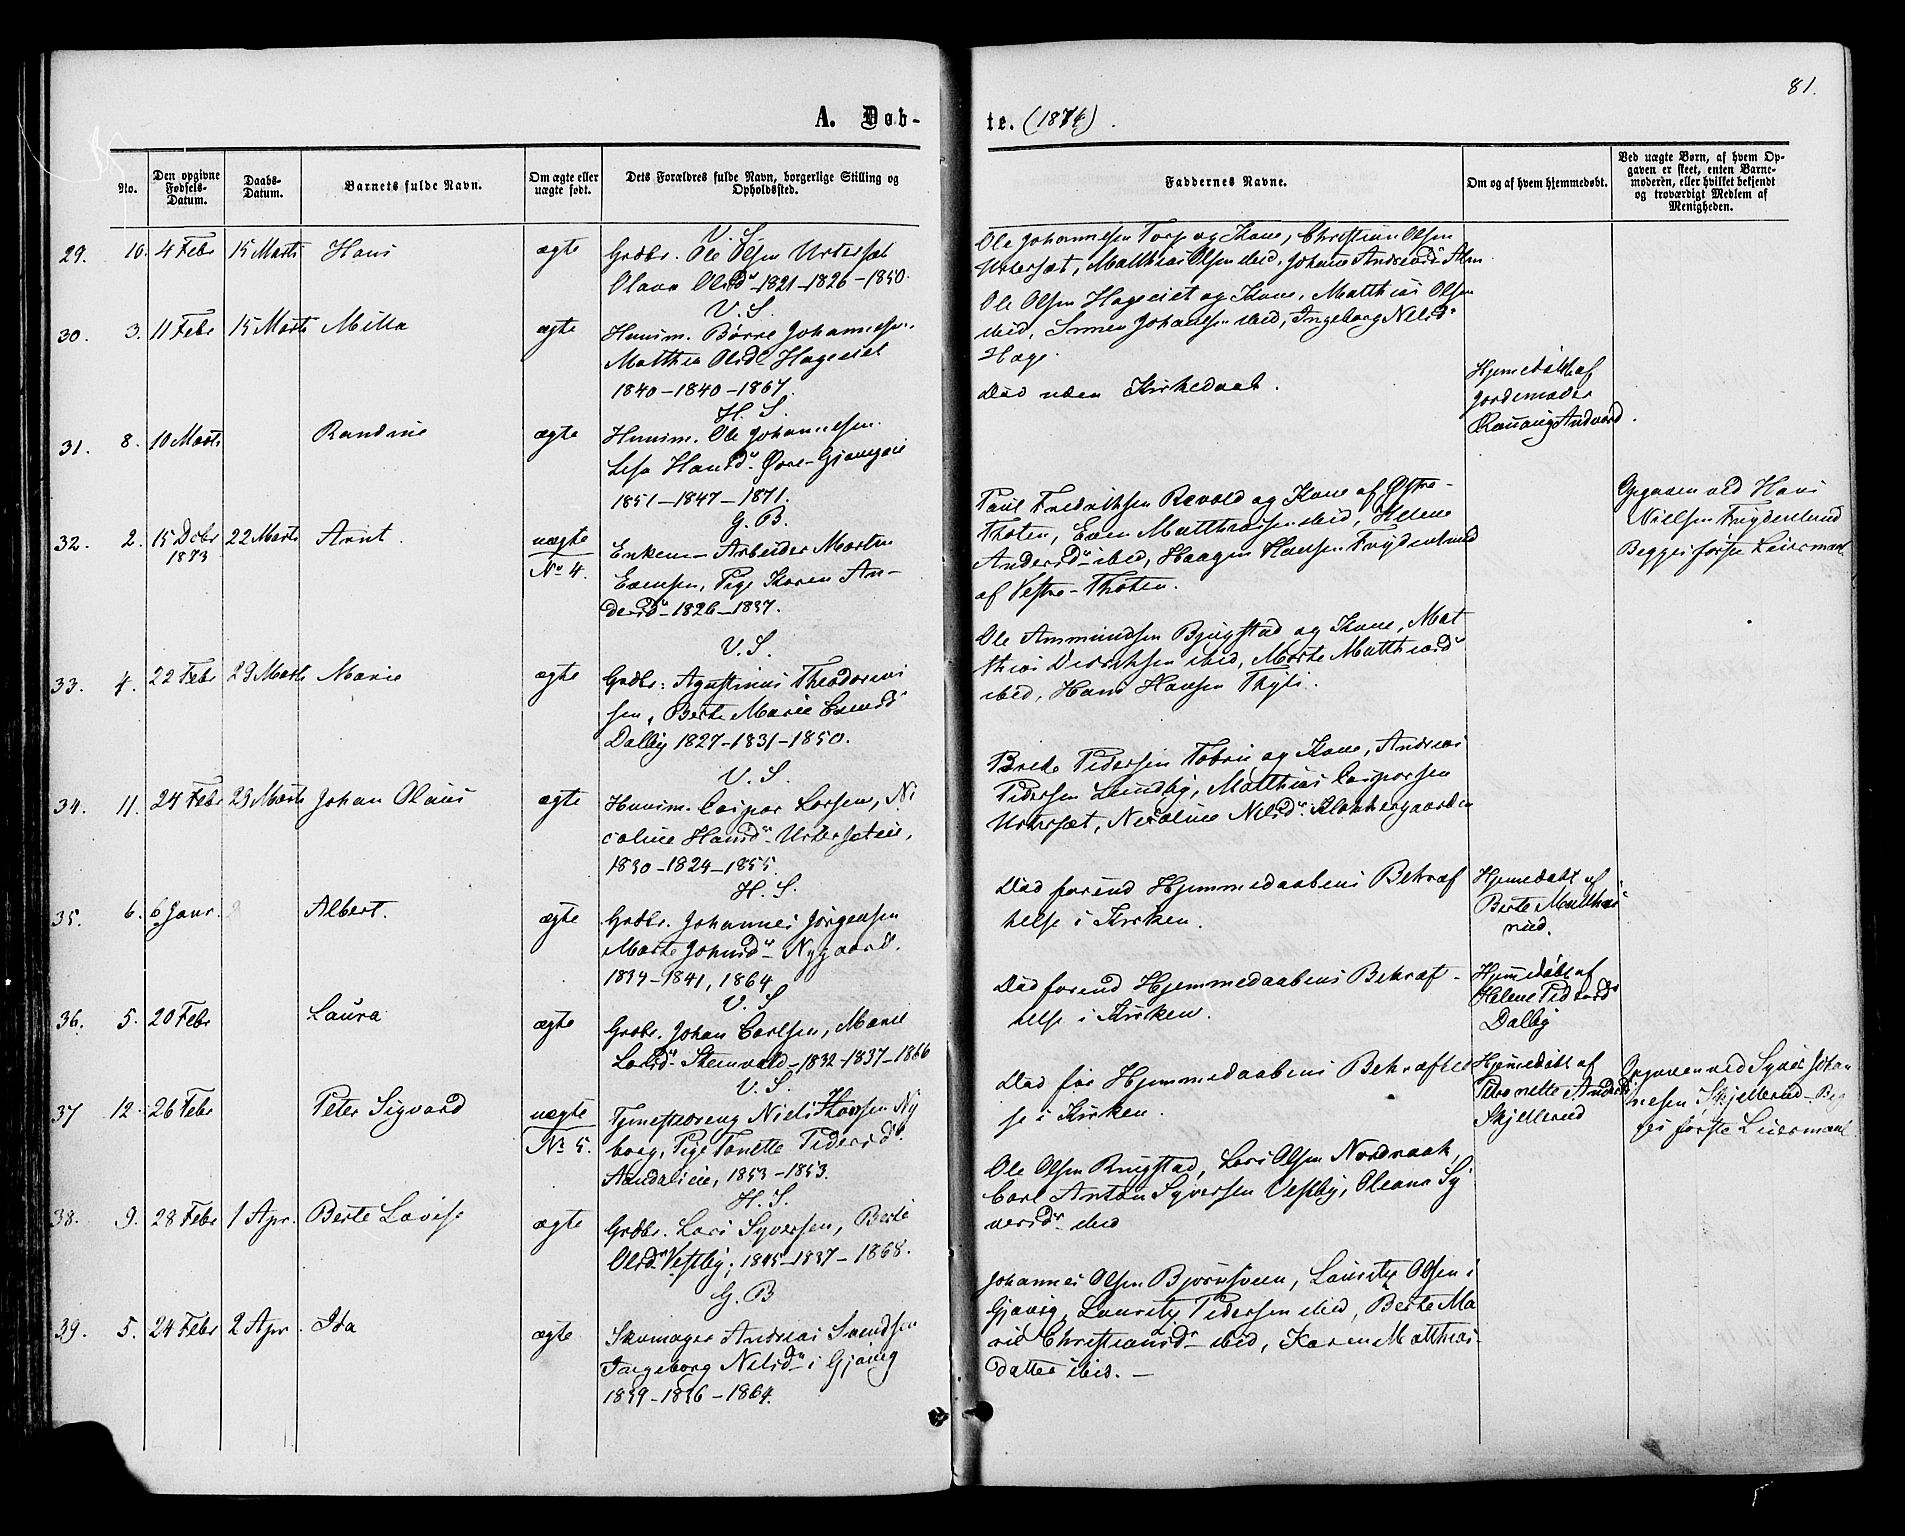 81.
A. Døb-
te. (1874).
No.
Den opgivne Fødsels-Datum.
Daabs-Datum.
Barnets fulde Navn.
Om ægte eller uægte født.
Dets Forældres fulde Navn, borgerlige Stilling og Opholdssted.
Faddernes Navne.
Om og af hvem hjemmedøbt.
Ved uægte Børn, af hvem Op-
gaven er skeet, enten Barne-
moderen, eller hvilket bekjendt
og troværdigt Medlem af
Menigheden.
V. S.
29. 10. 4 Febr 15 Marts Hans ægte Grdbr. Ole Olsen Urtersæt
Olava Olsd. 1821-1826-1850.
Ole Johannesen Torp og Kone, Christian Olsen
Urtersæt, Matthias Olsen ibid, Johane Andreasd.
V. S.
30. 3. 11 Febr 15 Marts Milla ægte Huusm. Børre Johannesen
Matthea Olsd. Hageeiet
1840-1840-1867.
Ole Olsen Hageeiet og Kone, Matthias Olsen
ibid, Simen Johansen ibid, Ingeborg Nilsd.
Hage.
H. S.
31. 8. 10 Marts Randine ægte Huusm. Ole Johannesen
Lisa Hansd. Øvre-
1851-1847-1871.
Død uden Kirkedaab.
Hjemedøbt af
Jordemoder
G. B.
32. 2. 15 Dcbr 1873 22 Marts Arnt. uægte No 4. Enkem. Arbeider Morten
Evensen, Pige Karen An-
dersd. 1826-1837.
Paul Fredriksen Revold og Kone af Østre-
Thoten, Even Matthiassen ibid, Helene
Andersd. ibid, Haagen Hansen Frydenlund
af Vestre-Thoten.
Opgaven ved Hans
Nielsen Frydenlund
Begges første Leiermaal
V. S.
33. 4. 22 Febr 29 Marts Marie ægte Grdbr. Agustinus Theodorus
sen, Berte Marie Evensd.
Dalby 1827-1831-1850.
Ole Ammundsen Bjugstad og Kone, Mat
thias Didriksen ibid, Marte Matthiasd.
ibid, Hans Hansen
V. S.
34. 11. 24 Febr 29 Marts Johan Olaus ægte Huusm. Casper Larsen, Ni
coline Hansd. Urtersæteie,
1830-1824-1855.
Brede Pedersen og Kone, Andreas
Pedersen Lundby, Matthias Caspersen
Urtersæt, Nicoline Nilsd. Klokkergaarden
H. S.
35. 6. 6 Janr. Albert. ægte Grdbr. Johannes Jørgensen
Marte Johnsd. Nygaard.
1839-1841, 1864
Død forend Hjemmedaabens Bekræf
telse i Kirken.
Hjemedøbt af
Berte Matthias
rud.
V. S
36. 5. 20 Febr Laura ægte Grdbr. Johan Carlsen, Marie
Larsd. Steinvold 1832-1837-1866
Død forend Hjemmedaabens Bekræf-
telse i Kirken.
Hjemedøbt af
Helene Pedersd.
Dalby
V. S.
37 12. 26 Febr Peter Sigvard uægte No 5. Tjenestedreng Niels Hansen Ny
borg, Pige Tonette Pedersd.
1853-1853.
Død før Hjemmedaabens Bekræftel
se i Kirken.
Hjemedøbt af
Petronette Andersd.
Skjellerud
Opgaven ved Syver Johan
nesen Skjellerud - Beg
ges første Leiermaal
H. S.
38. 9. 28 Febr 1 Apr. Berte Lovise ægte Grdbr. Lars Syversen, Berte
Olsd. Vestby, 1845-1837-1868.
Ole Olsen Rugstad, Lars Olsen Nordraak,
Carl Anton Syversen Vestby, Oleana Sy
versd. ibid
G. B
39. 5. 24 Febr 2 Apr. Ida ægte Skomager Andreas Svendsen
Ingeborg Nilsd. i Gjøvig
1839-1836-1864.
Johannes Olsen Bjørnsveen, Lauritz Olsen i
Gjøvig, Lauritz Pedersen ibid, Berte Ma
rie Christiansd. ibid, Karen Matthias-
datter ibid.